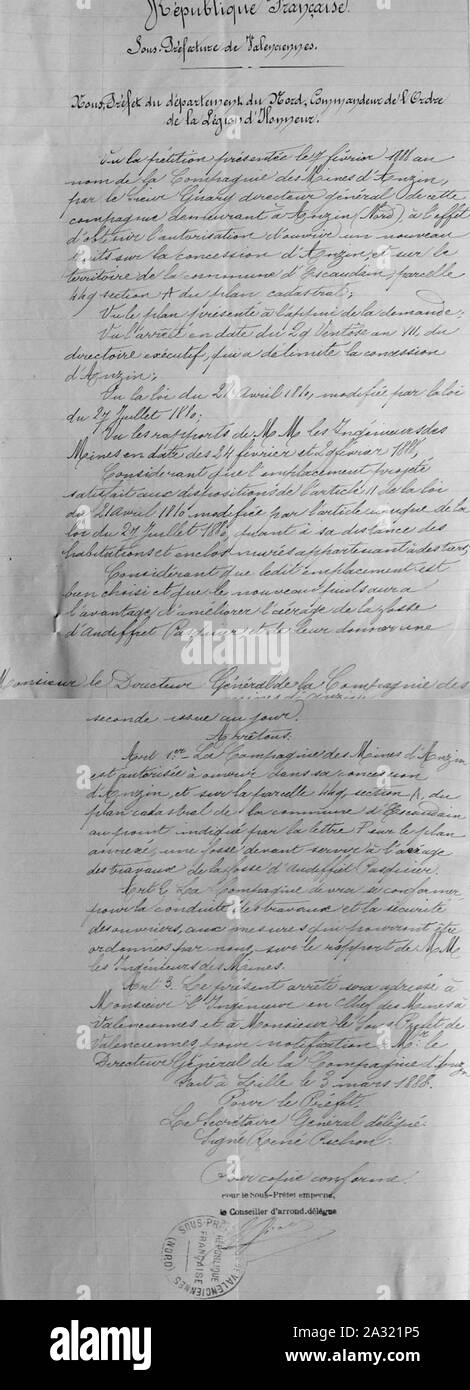 République Française.
Sous-Préfecture de Valenciennes.
Nous, Préfet du département du Nord, Commandeur de l'Ordre
de la Légion d'Honneur.
Vu la pétition présentée le 7 février 1888 au
nom de la Compagnie des Mines d'Anzin,
par le Sieur Guary directeur général de cette
compagnie demeurant à Anzin (Nord), à l'effet
d'obtenir l'autorisation d'ouvrir un nouveau
puits sur la concession d'Anzin et sur le
territoire de la commune d'Escaudain, parcelle
449 section A du plan cadastral;
Vu le plan présenté à l'appui de la demande;
Vu l'arrêté en date du 29 Ventose an VII, du
directoire exécutif, qui a délimité la concession
d'Anzin;
Vu la loi du 21 Avril 1810, modifiée par la loi
du 27 Juillet 1880;
Vu les rapports de M M les Ingénieurs des
Mines en date des 24 février et février 1888,
Considérant que l'emplacement projeté
satisfait aux dispositions de l'article 11 de la loi
du 21 Avril 1810 modifiée par l'article unique de la
loi du 27 Juillet 1880, quant à sa distance des
habitations et enclos murés appartenant à des tiers;
Considérant que ledit emplacement est
bien choisi et que le nouveau puits aura
l'avantage d'améliorer l'aérage de la fosse
d'Audiffret Pasquier et de leur donner une
Monsieur le Directeur Général de la Compagnie des
seconde issue au jour.
Arrêtons:
Art 1.er La Compagnie des Mines d'Anzin
est autorisée à ouvrir dans sa concession
d'Anzin, et sur la parcelle 449, section A, du
plan cadastral de la commune d'Escaudain
au point indiqué par la lettre P sur le plan
annexé, une fosse devant servir à l'aérage
des travaux de la fosse d'Audiffret Pasquier.
Art 2. La Compagnie devra se conformer,
pour la conduite des travaux et la sécurité
des ouvriers, aux mesures qui pourront être
ordonnées par nous, sur le rapport de M M
les Ingénieurs des Mines.
Art 3. Le présent arrêté sera adressé à
Monsieur l'Ingénieur en Chef des Mines à
Valenciennes et à Monsieur le Sous-Préfet de
Valenciennes pour notification à Mr. le
Directeur Général de la Compagnie d'Anzin
Fait à Lille le 3 mars 1888.
Pour le Préfet.
Le Secrétaire Général délégué.
Signé René Pichon.
Pour copie conforme.
pour le Sous-Préfet empêché,
le Conseiller d'arrond. délégué
SOUS-PRÉFECTURE DE VALENCIENNES (NORD)
RÉPUBLIQUE
FRANÇAISE
alamy
alamy
Image ID: 2A321P5
www.alamy.com